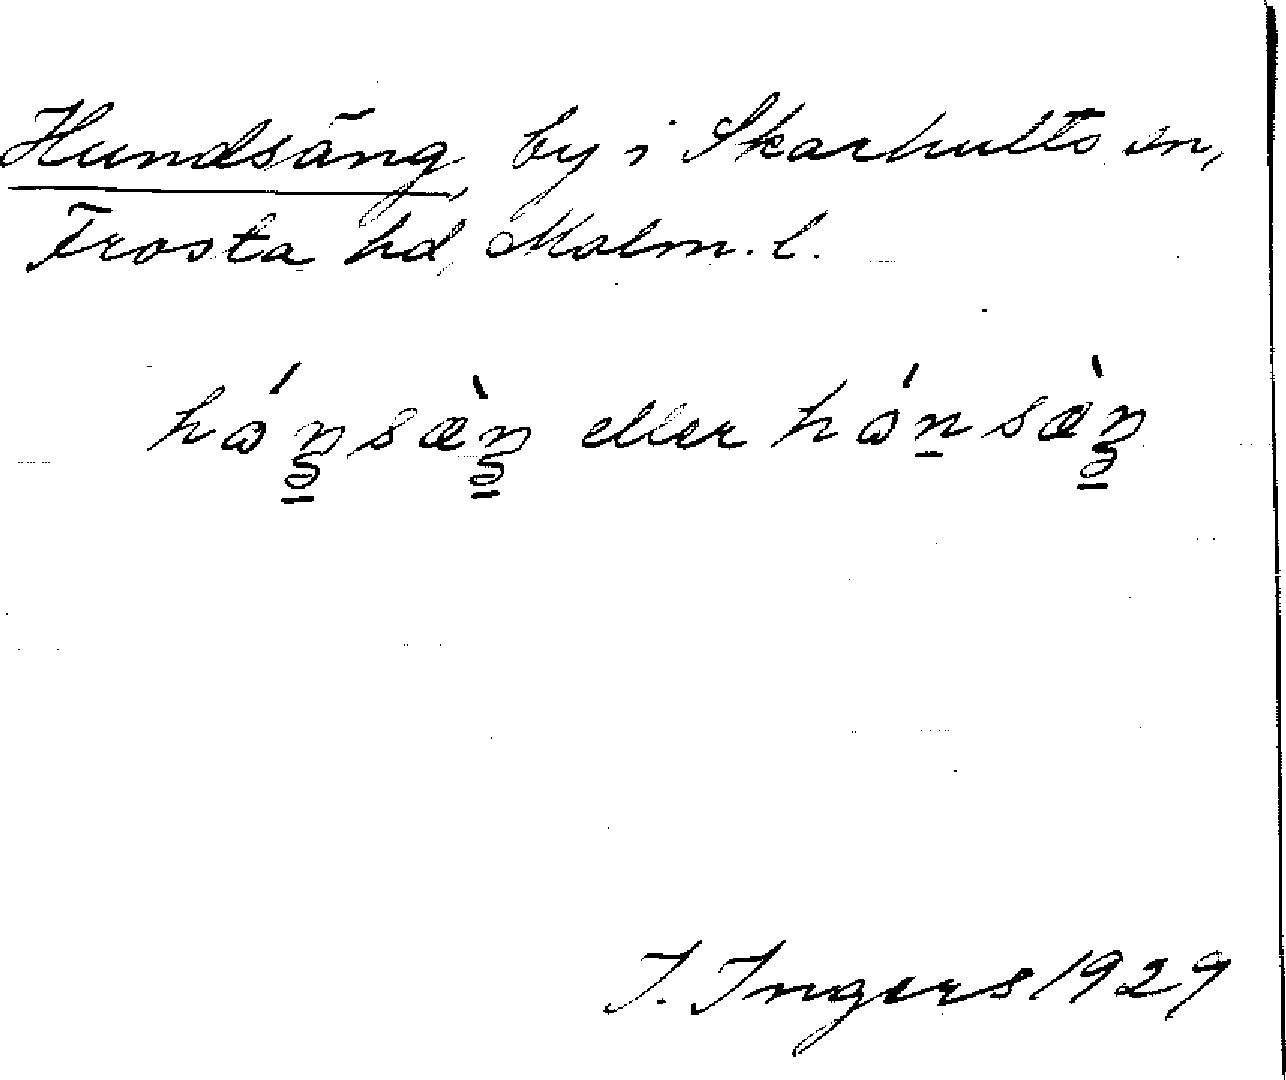 Hundsäng, by i Skarhults sn,
Frosta hd, Malm. l.
hóŋ̠sæ̀ŋ̠ eller hón̠sæ̀ŋ̠
I. Ingers 1929